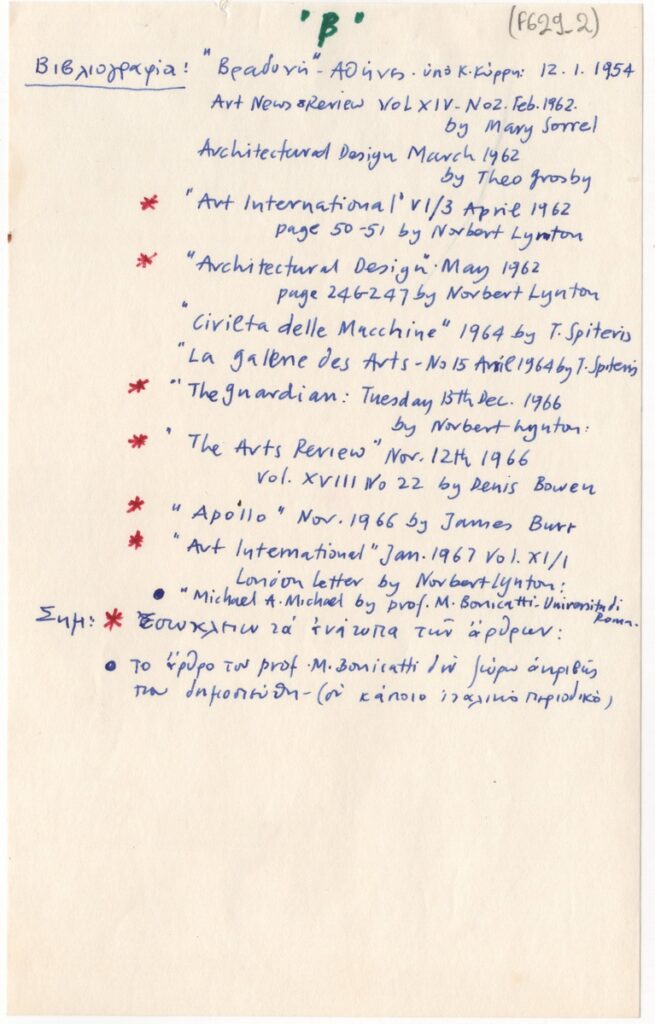 "β"
(F629_2)
Βιβλιογραφία: "Βραδυνή" - Αθήναι. ὑπό Κ. Κύρρη: 12.1.1954
Art News & Review Vol XIV - No2. Feb. 1962.
by Mary Sorrel
Architectural Design March 1962
by Theo Grosby
* "Art International" VI/3 April 1962
page 50-51 by Norbert Lynton
* "Architectural Design". May 1962
page 246-247 by Norbert Lynton
"Civilta delle Macchine" 1964 by T. Spiteris
"La galerie des Arts - No 15 Avril 1964 by T. Spiteris
* "The guardian: Tuesday 13th Dec. 1966
by Norbert Lynton:
* "The Arts Review" Nov. 12th 1966
Vol. XVIII No 22 by Denis Bowen
* "Apollo" Nov. 1966 by James Burr
* "Art International" Jan. 1967 Vol. XI/1
London letter by Norbert Lynton:
• "Michael A. Michael by prof. M. Bonicatti - Universita di Roma.
Σημ: * Ἐσωκλείω τά ἀνάτυπα τῶν ἄρθρων:
• Το ἄρθρο του prof. M. Bonicatti δέν ξαίρω ἀκριβῶς
που δημοσιεύθη - (σέ κάποιο ἰταλικό περιοδικό)